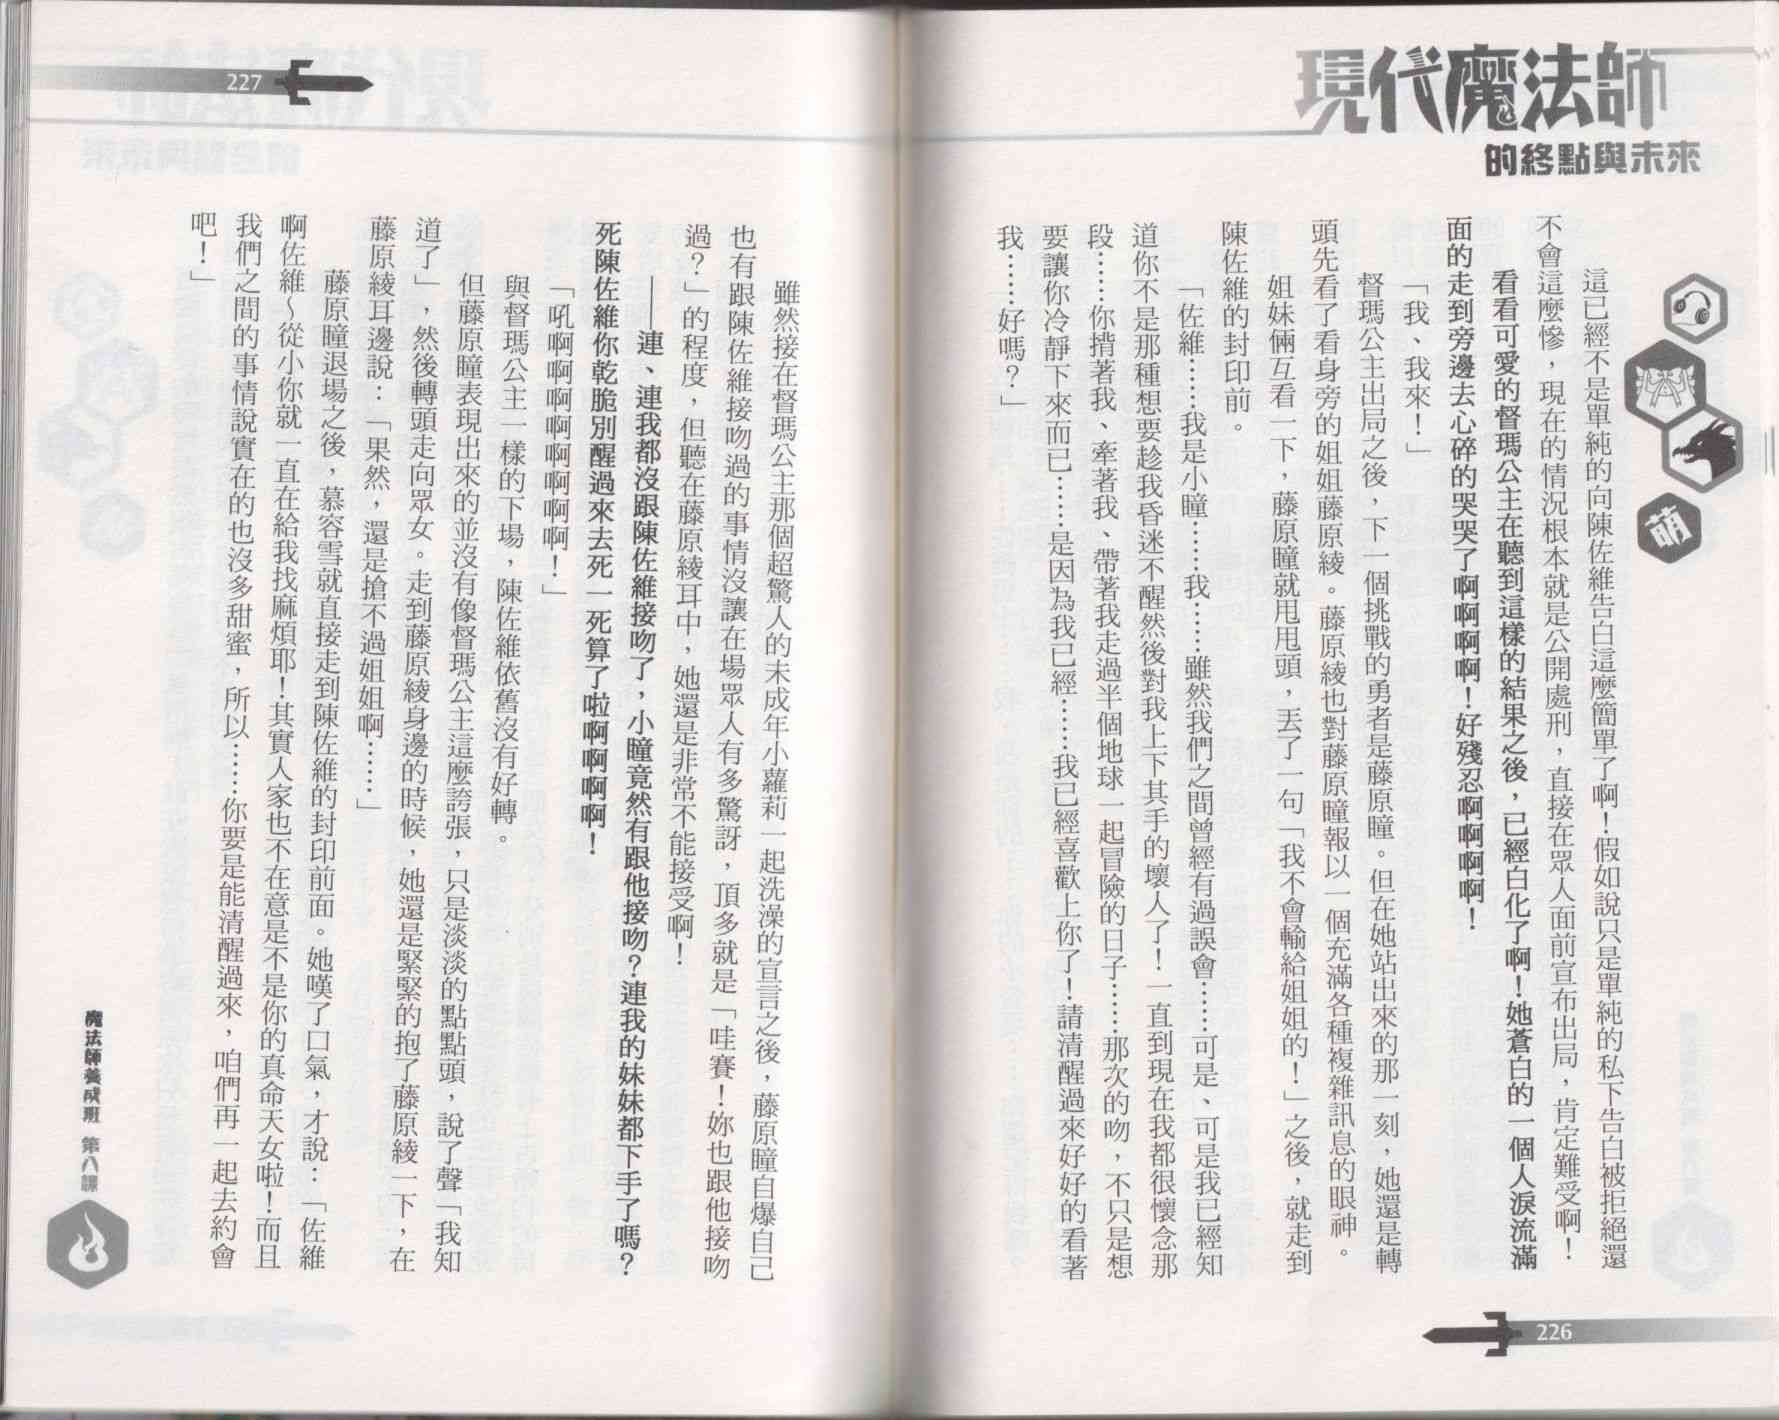 現代魔法師
的終點與未來
萌
這已經不是單純的向陳佐維告白這麼簡單了啊！假如說只是單純的私下告白被拒絕還
不會這麼慘，現在的情況根本就是公開處刑，直接在眾人面前宣布出局，肯定難受啊！
看看可愛的督瑪公主在聽到這樣的結果之後，已經白化了啊！她蒼白的一個人淚流滿
面的走到旁邊去心碎的哭哭了啊啊啊啊！好殘忍啊啊啊啊！
「我、我來！」
督瑪公主出局之後，下一個挑戰的勇者是藤原瞳。但在她站出來的那一刻，她還是轉
頭先看了看身旁的姐姐藤原綾。藤原綾也對藤原瞳報以一個充滿各種複雜訊息的眼神。
姐妹倆互看一下，藤原瞳就甩甩頭，丟了一句「我不會輸給姐姐的！」之後，就走到
陳佐維的封印前。
「佐維……我是小瞳……我……雖然我們之間曾經有過誤會……可是、可是我已經知
道你不是那種想要趁我昏迷不醒然後對我上下其手的壞人了！一直到現在我都很懷念那
段……你揹著我、牽著我、帶著我走過半個地球一起冒險的日子……那次的吻，不只是想
要讓你冷靜下來而已……是因為我已經……我已經喜歡上你了！請清醒過來好好的看著
我……好嗎？」
226
227
雖然接在督瑪公主那個超驚人的未成年小蘿莉一起洗澡的宣言之後，藤原瞳自爆自己
也有跟陳佐維接吻過的事情沒讓在場眾人有多驚訝，頂多就是「哇賽！妳也跟他接吻
過？」的程度，但聽在藤原綾耳中，她還是非常不能接受啊！
——連、連我都沒跟陳佐維接吻了，小瞳竟然有跟他接吻？連我的妹妹都下手了嗎？
死陳佐維你乾脆別醒過來去死一死算了啦啊啊啊啊！
「吼啊啊啊啊啊啊啊啊！」
與督瑪公主一樣的下場，陳佐維依舊沒有好轉。
但藤原瞳表現出來的並沒有像督瑪公主這麼誇張，只是淡淡的點點頭，說了聲「我知
道了」，然後轉頭走向眾女。走到藤原綾身邊的時候，她還是緊緊的抱了藤原綾一下，在
藤原綾耳邊說：「果然，還是搶不過姐姐啊……」
藤原瞳退場之後，慕容雪就直接走到陳佐維的封印前面。她嘆了口氣，才說：「佐維
啊佐維～從小你就一直在給我找麻煩耶！其實人家也不在意是不是你的真命天女啦！而且
我們之間的事情說實在的也沒多甜蜜，所以……你要是能清醒過來，咱們再一起去約會
吧！」
魔法師養成班 第八課